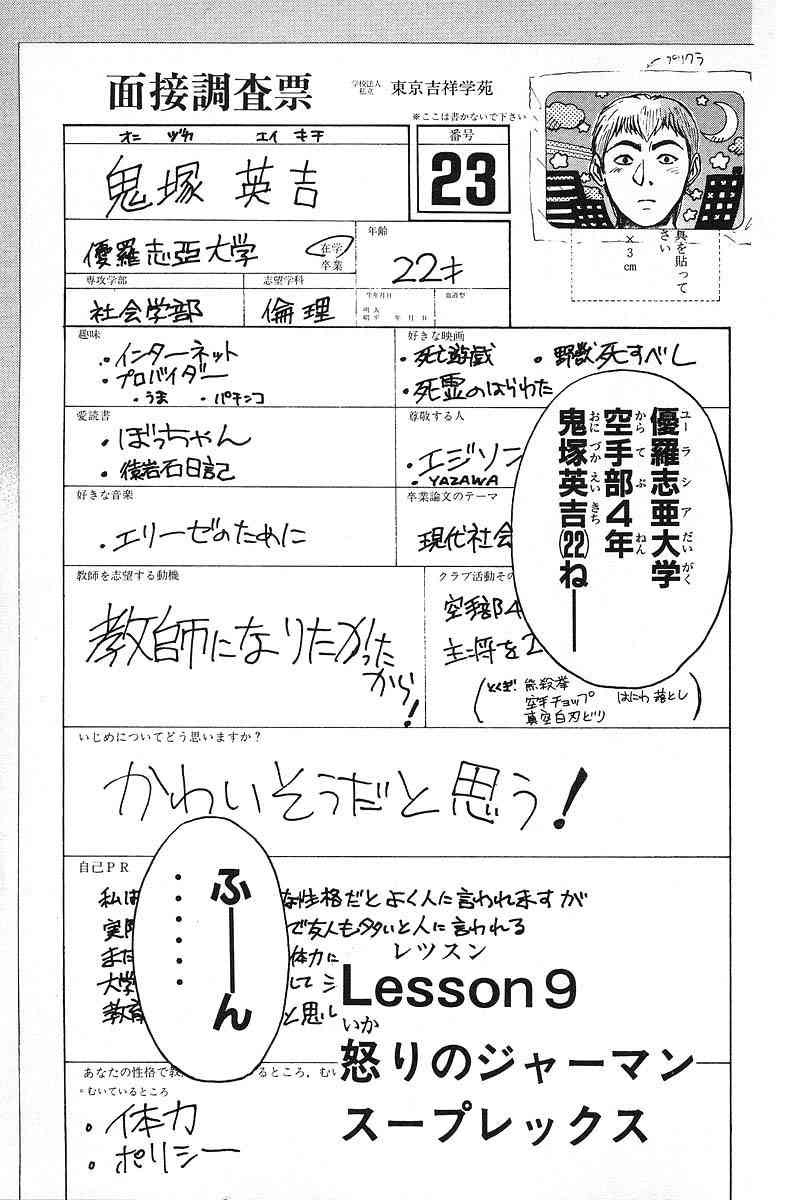 プリクラ
面接調査票
学校法人
私立
東京吉祥学苑
※ここは書かないで下さい
オニ ヅカ エイ キチ
鬼塚 英吉
番号
23
真を貼って
さい
×3cm
優羅志亜大学
在学
卒業
年齢
22才
専攻学部
社会学部
志望学科
倫理
生年月日
年 月 日
血液型
趣味
・インターネット
・プロバイダー
・うま ・パチンコ
好きな映画
・死亡遊戯 ・野獣死すべし
・死霊のはらわた
愛読書
・ぼっちゃん
・猿岩石日記
尊敬する人
・エジソン
・YAZAWA
好きな音楽
・エリーゼのために
卒業論文のテーマ
現代社会
優羅志亜大学
ユーラシアだいがく
空手部4年
からてぶ ねん
鬼塚英吉(22)ね——
おにづかえいきち
教師を志望する動機
教師になりたかった
から!
クラブ活動その
空手部4
主将を2
とくぎ: 熊殺拳
空手チョップ はにわ落とし
真空白刃どり
いじめについてどう思いますか?
かわいそうだと思う!
自己PR
私は
な性格だとよく人に言われますが
実際
で友人も多いと人に言われる
また
体力に
大学
して
教育
と思し
ふ——ん
・・・・・・
レッスン
Lesson 9
いか
怒りのジャーマン
スープレックス
あなたの性格で教
るところ,むい
・むいているところ
・体力
・ポリシー